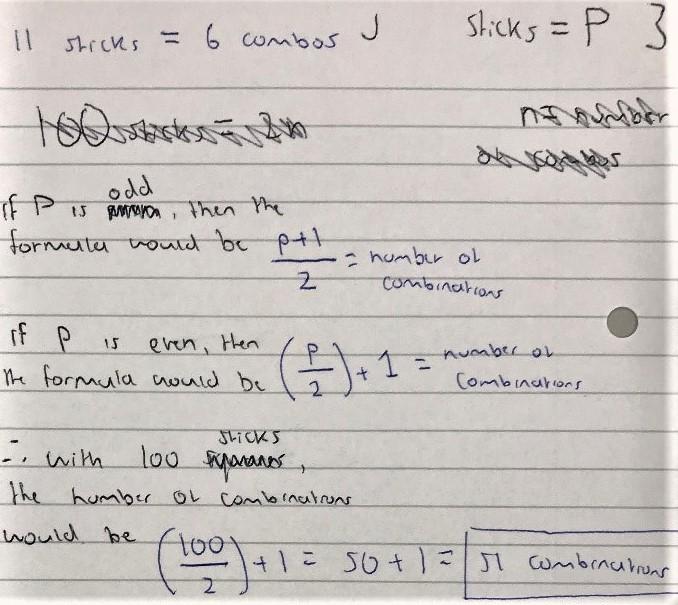 11 sticks = 6 combos
sticks = P
100 sticks =
n = number
of combos
if P is odd, then the
formula would be p+1/2 = number of
combinations
if P is even, then
the formula would be (P/2) + 1 = number of
combinations
∴ with 100 sticks,
the number of combinations
would be (100/2) + 1 = 50 + 1 = 51 combinations